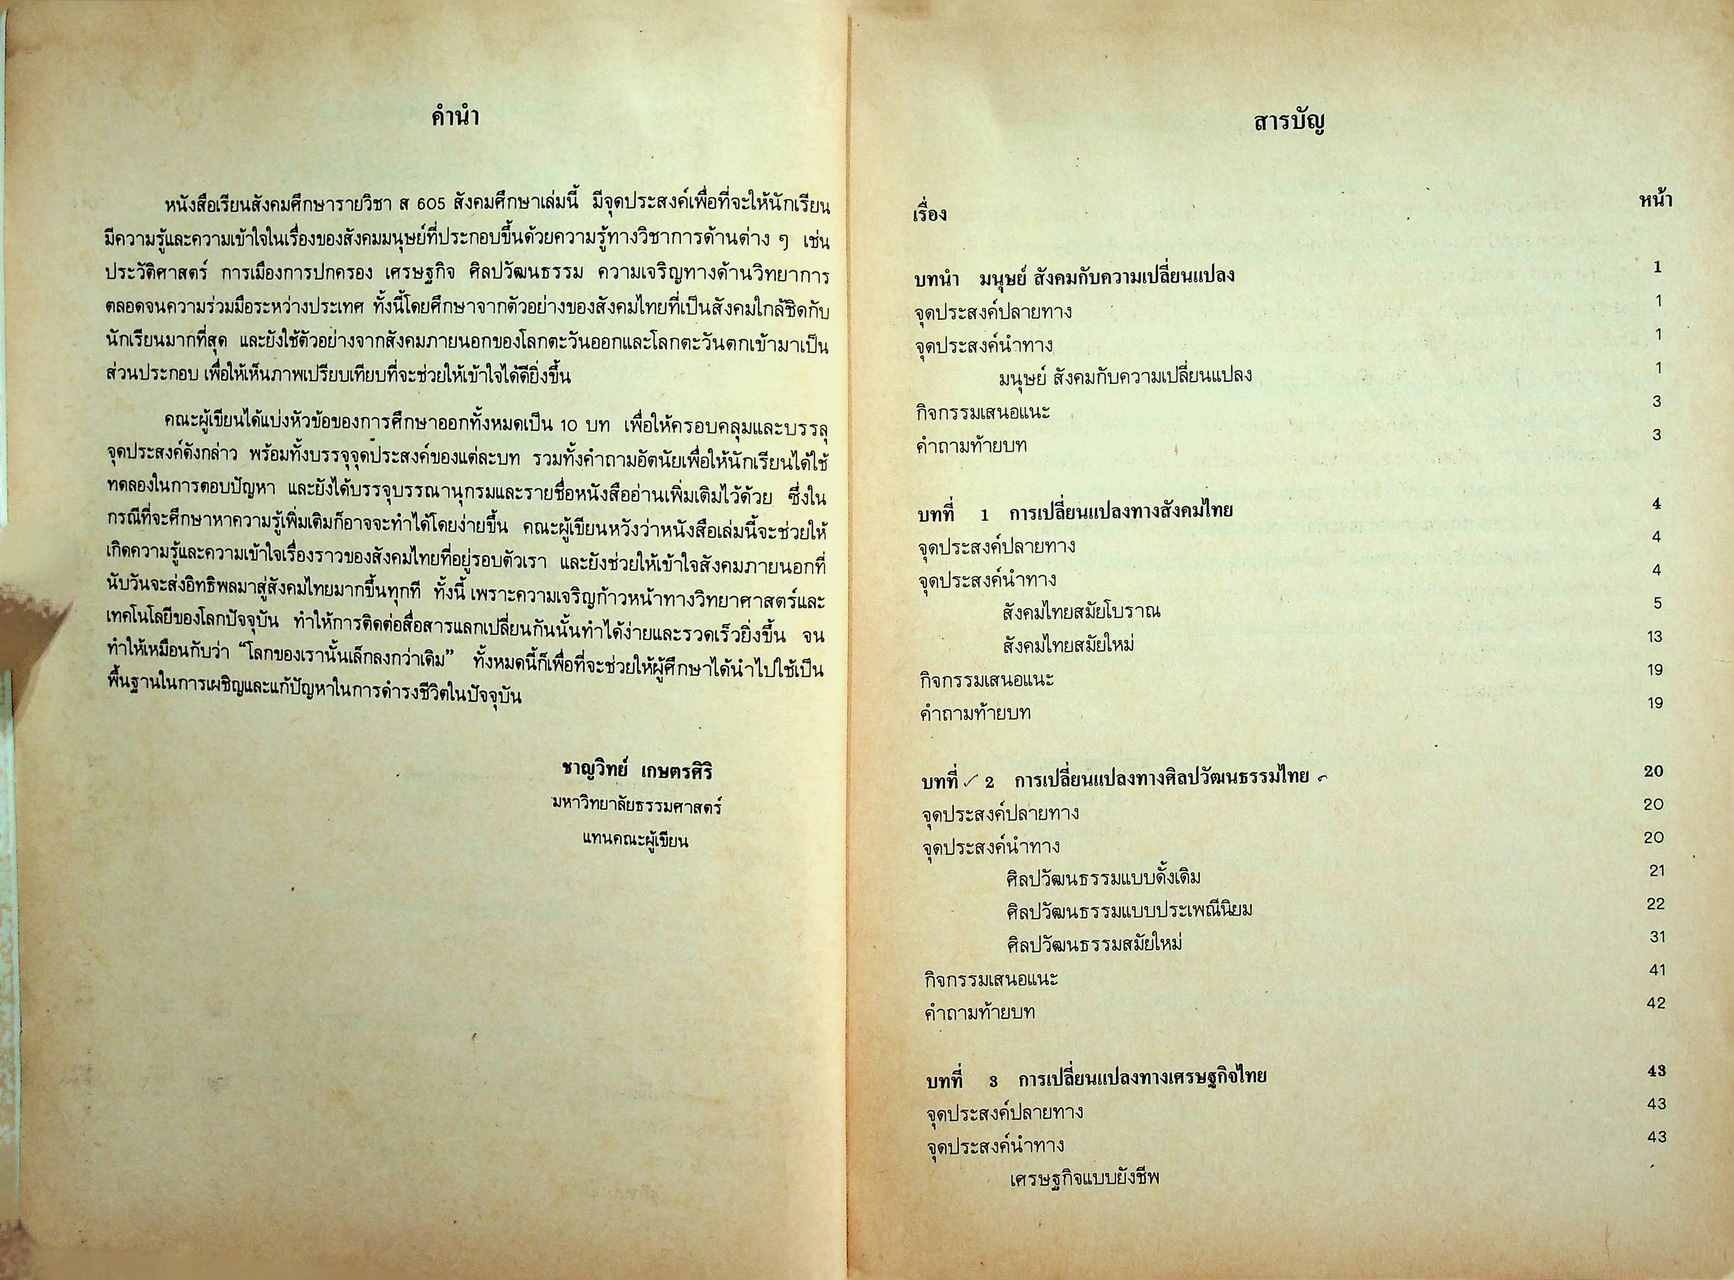 คำนำ
หนังสือเรียนสังคมศึกษารายวิชา ส 605 สังคมศึกษาเล่มนี้ มีจุดประสงค์เพื่อที่จะให้นักเรียน
มีความรู้และความเข้าใจในเรื่องของสังคมมนุษย์ที่ประกอบขึ้นด้วยความรู้ทางวิชาการด้านต่าง ๆ เช่น
ประวัติศาสตร์ การเมืองการปกครอง เศรษฐกิจ ศิลปวัฒนธรรม ความเจริญทางด้านวิทยาการ
ตลอดจนความร่วมมือระหว่างประเทศ ทั้งนี้โดยศึกษาจากตัวอย่างของสังคมไทยที่เป็นสังคมใกล้ชิดกับ
นักเรียนมากที่สุด และยังใช้ตัวอย่างจากสังคมภายนอกของโลกตะวันออกและโลกตะวันตกเข้ามาเป็น
ส่วนประกอบ เพื่อให้เห็นภาพเปรียบเทียบที่จะช่วยให้เข้าใจได้ดียิ่งขึ้น
คณะผู้เขียนได้แบ่งหัวข้อของการศึกษาออกทั้งหมดเป็น 10 บท เพื่อให้ครอบคลุมและบรรลุ
จุดประสงค์ดังกล่าว พร้อมทั้งบรรจุจุดประสงค์ของแต่ละบท รวมทั้งคำถามอัตนัยเพื่อให้นักเรียนได้ใช้
ทดลองในการตอบปัญหา และยังได้บรรจุบรรณานุกรมและรายชื่อหนังสืออ่านเพิ่มเติมไว้ด้วย ซึ่งใน
กรณีที่จะศึกษาหาความรู้เพิ่มเติมก็อาจจะทำได้โดยง่ายขึ้น คณะผู้เขียนหวังว่าหนังสือเล่มนี้จะช่วยให้
เกิดความรู้และความเข้าใจเรื่องราวของสังคมไทยที่อยู่รอบตัวเรา และยังช่วยให้เข้าใจสังคมภายนอกที่
นับวันจะส่งอิทธิพลมาสู่สังคมไทยมากขึ้นทุกที ทั้งนี้ เพราะความเจริญก้าวหน้าทางวิทยาศาสตร์และ
เทคโนโลยีของโลกปัจจุบัน ทำให้การติดต่อสื่อสารแลกเปลี่ยนกันนั้นทำได้ง่ายและรวดเร็วยิ่งขึ้น จน
ทำให้เหมือนกับว่า "โลกของเรานั้นเล็กลงกว่าเดิม" ทั้งหมดนี้ก็เพื่อที่จะช่วยให้ผู้ศึกษาได้นำไปใช้เป็น
พื้นฐานในการเผชิญและแก้ปัญหาในการดำรงชีวิตในปัจจุบัน
ชาญวิทย์ เกษตรศิริ
มหาวิทยาลัยธรรมศาสตร์
แทนคณะผู้เขียน
สารบัญ
เรื่อง หน้า
บทนำ มนุษย์ สังคมกับความเปลี่ยนแปลง 1
จุดประสงค์ปลายทาง 1
จุดประสงค์นำทาง 1
มนุษย์ สังคมกับความเปลี่ยนแปลง 1
กิจกรรมเสนอแนะ 3
คำถามท้ายบท 3
บทที่ 1 การเปลี่ยนแปลงทางสังคมไทย 4
จุดประสงค์ปลายทาง 4
จุดประสงค์นำทาง 4
สังคมไทยสมัยโบราณ 5
สังคมไทยสมัยใหม่ 13
กิจกรรมเสนอแนะ 19
คำถามท้ายบท 19
บทที่ 2 การเปลี่ยนแปลงทางศิลปวัฒนธรรมไทย 20
จุดประสงค์ปลายทาง 20
จุดประสงค์นำทาง 20
ศิลปวัฒนธรรมแบบดั้งเดิม 21
ศิลปวัฒนธรรมแบบประเพณีนิยม 22
ศิลปวัฒนธรรมสมัยใหม่ 31
กิจกรรมเสนอแนะ 41
คำถามท้ายบท 42
บทที่ 3 การเปลี่ยนแปลงทางเศรษฐกิจไทย 43
จุดประสงค์ปลายทาง 43
จุดประสงค์นำทาง 43
เศรษฐกิจแบบยังชีพ